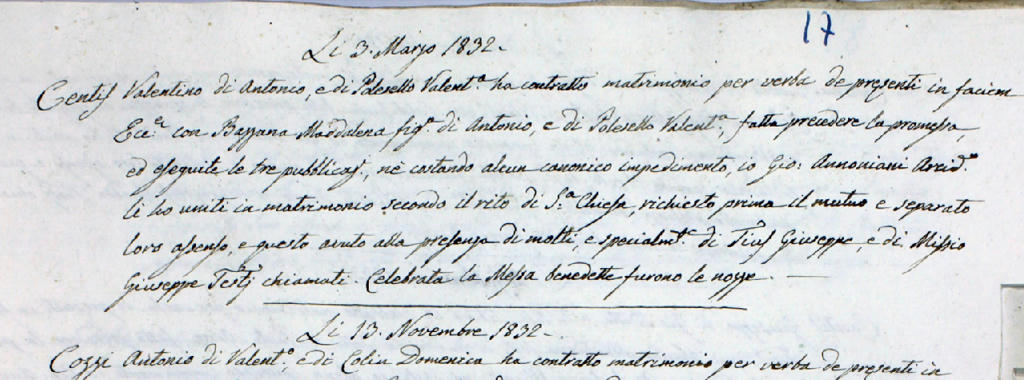 17
Li 3. Marzo 1832.
Centis Valentino di Antonio, e di Polesello Valent.a ha contratto matrimonio per verba de presenti in faciem
Ecc.ae con Bazzana Maddalena fig.a di Antonio, e di Polesello Valent.a, fatta precedere la promessa,
ed eseguite le tre pubblicaz., nè costando alcun canonico impedimento, io Gio: Annoniani Arcid.
li ho uniti in matrimonio secondo il rito di S.a Chiesa, richiesto prima il mutuo e separato
loro assenso, e questo avuto alla presenza di molti, e specialm.e di Tius Giuseppe, e di Missio
Giuseppe Testj chiamati. Celebrata la Messa benedette furono le nozze.
Li 13. Novembre 1832.
Cozzi Antonio di Valent.o, e di Colia Domenica ha contratto matrimonio per verba de presenti in